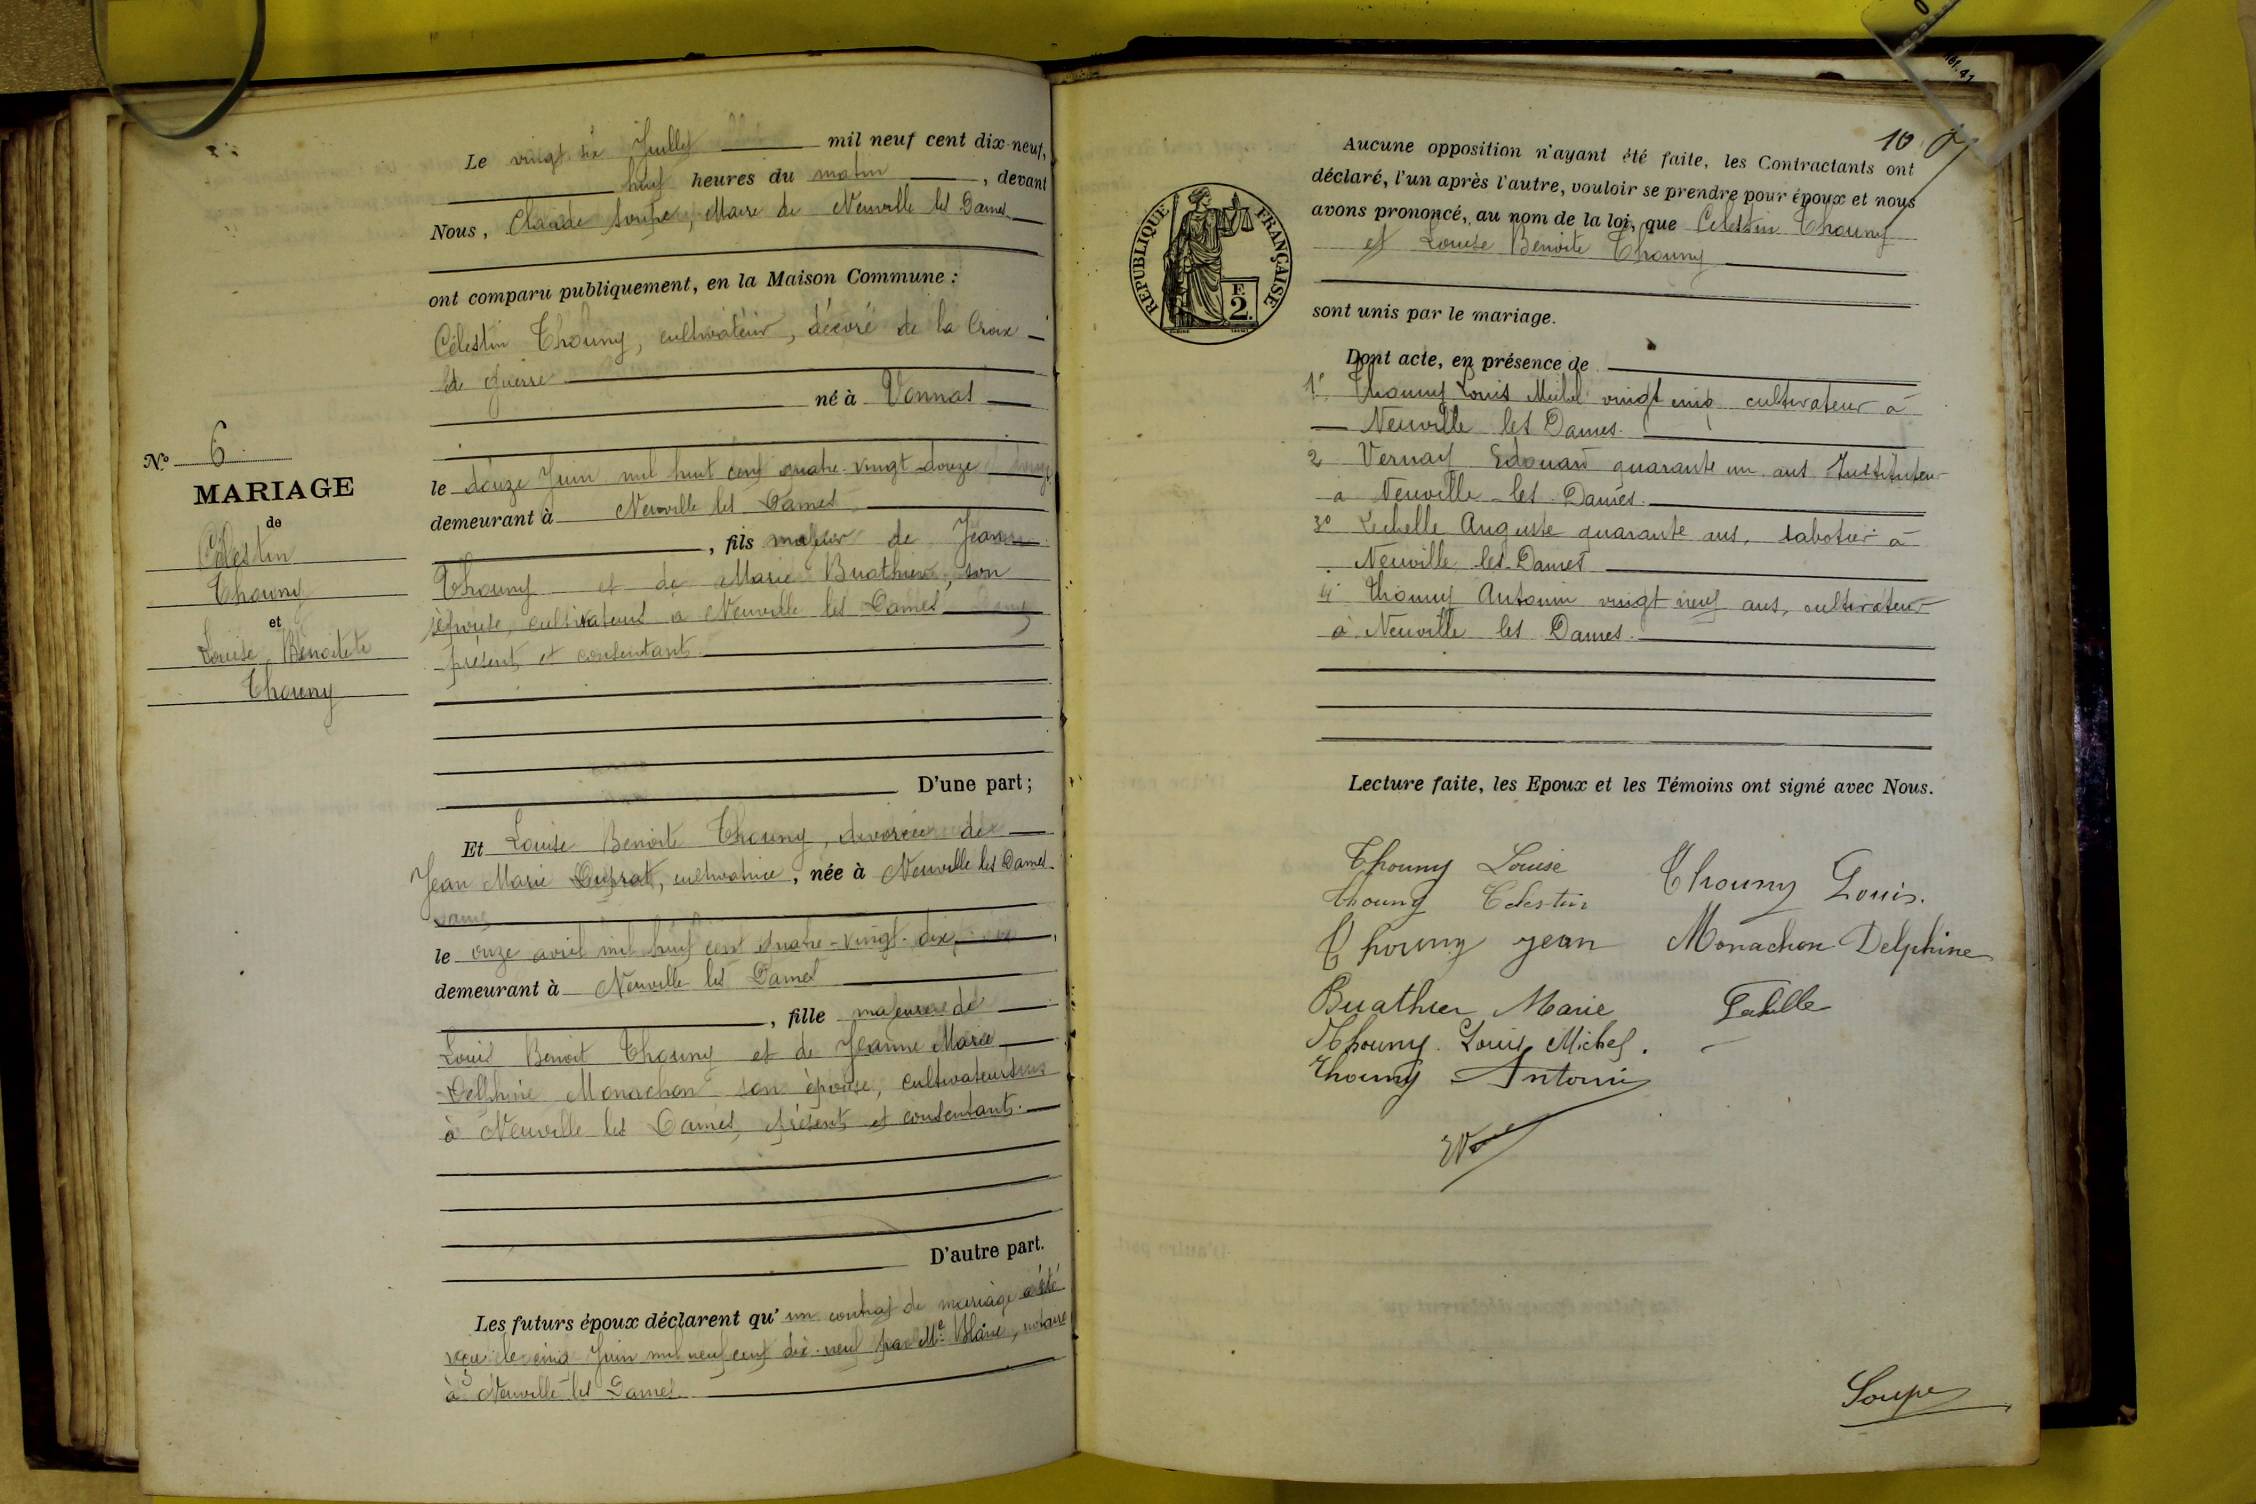 Le vingt six Juillet mil neuf cent dix-neuf,
heures du matin, devant
Nous, Claude Soupe, Maire de Neuville les Dames
ont comparu publiquement, en la Maison Commune :
Célestin Thouny, cultivateur, décoré de la Croix
de guerre
né à Vonnas
le douze Juin mil huit cent quatre-vingt-douze
demeurant à Neuville les Dames
, fils majeur de Jean
Thouny et de Marie Buathier, son
épouse, cultivateurs à Neuville les Dames
présents et consentants
D'une part ;
No 6
MARIAGE
de
Célestin
Thouny
et
Louise Benoite
Thouny
Et Louise Benoite Thouny, divorcée de
Jean Marie Duprat, cultivatrice, née à Neuville les Dames
le onze avril mil huit cent quatre-vingt-dix,
demeurant à Neuville les Dames
, fille majeure de
Louis Benoit Thouny et de Jeanne Marie
Delphine Monachon son épouse, cultivateurs
à Neuville les Dames, présents et consentants.
D'autre part.
Les futurs époux déclarent qu'un contrat de mariage a été
reçu le cinq Juin mil neuf cent dix-neuf par Me Blanc, notaire
à Neuville les Dames
10
Aucune opposition n'ayant été faite, les Contractants ont
déclaré, l'un après l'autre, vouloir se prendre pour époux et nous
avons prononcé, au nom de la loi, que Celestin Thouny
et Louise Benoite Thouny
REPUBLIQUE FRANÇAISE
F.
2.
sont unis par le mariage.
Dont acte, en présence de
1° Thouny Louis Michel vingt cinq cultivateur à
Neuville les Dames.
2 Vernay Edouard quarante un ans Instituteur
a Neuville-les-Dames.
3° Lechelle Auguste quarante ans, sabotier à
Neuville les Dames
4° Thouny Antonin vingt neuf ans, cultivateur
à Neuville les Dames.
Lecture faite, les Epoux et les Témoins ont signé avec Nous.
Thouny Louise
Thouny Louis.
Thouny Celestin
Thouny jean
Monachon Delphine
Buathier Marie
Thouny Louis Michel.
Thouny Antonin
Soupe